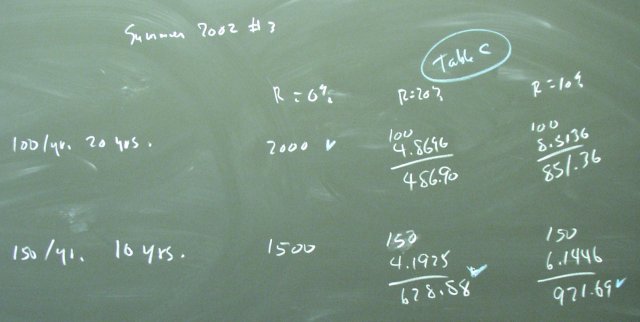 Summer 2002 #3
Table C
R=0% R=20% R=10%
100/yr. 20 yrs. 2000 ✓ 100 100
4.8696 8.5136
486.90 851.36
150/yr. 10 yrs. 1500 150 150
4.1925 6.1446
628.88 ✓ 921.69 ✓